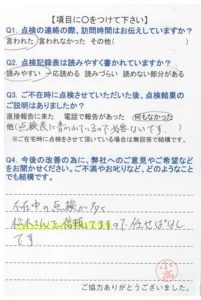 【項目に○をつけて下さい】
Q1. 点検の連絡の際、訪問時間はお伝えしていますか？
言われた 言われなかった その他( )
Q2. 点検記録表は読みやすく書かれていますか？
読みやすい 一応読める 読みづらい 読めない部分がある
Q3. ご不在時に点検させていただいた後、点検結果の
ご説明はありましたか？
直接報告に来た 電話で報告があった 何もなかった
他(点検表に書かれているので必要ないです )
※ご在宅時に点検をさせて頂いている場合は無回答で結構です。
Q4. 今後の改善の為に、弊社へのご意見やご希望など
をお聞かせください。ご不満やお叱りなど、どのようなこと
でも結構です。
不在中の点検が多く
さんを信頼してますので任せっぱなし
です
ご協力ありがとうございました。